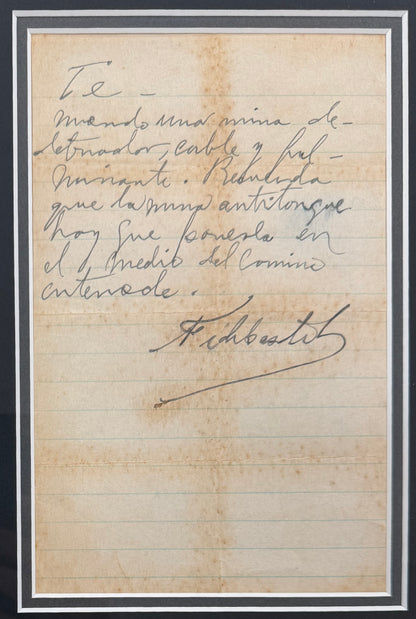 Te -
mando una mina de-
detonador, cable y ful-
minante. Recuerda
que la mina antitanque
hay que ponerla en
el medio del camino
enterrada.
Fidel Castro